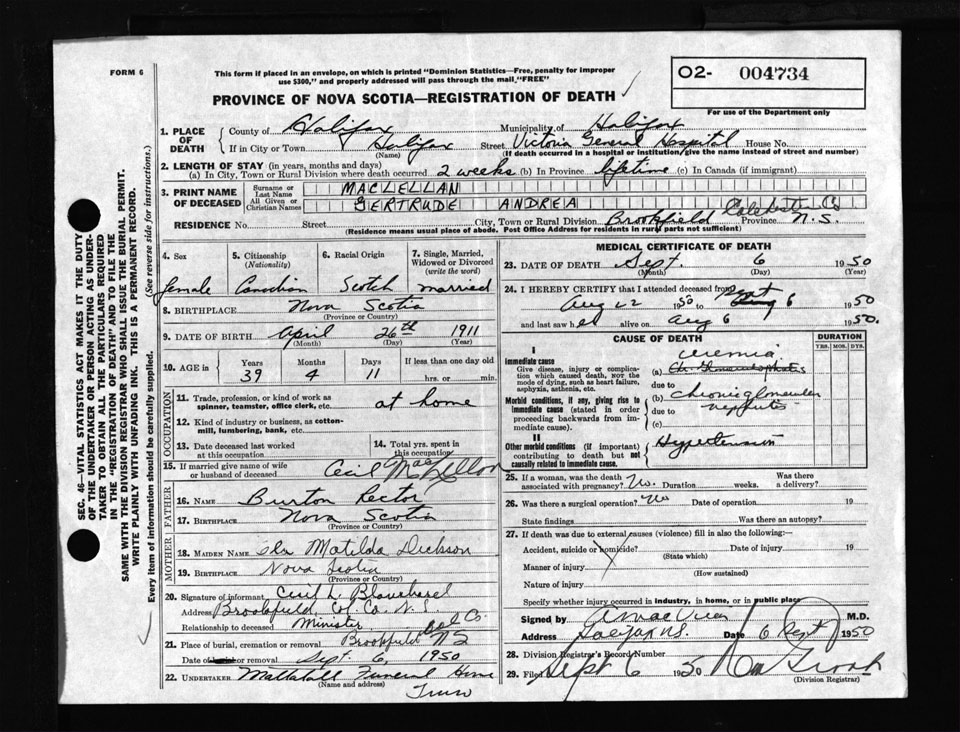 FORM 6
This form if placed in an envelope, on which is printed "Dominion Statistics—Free, penalty for improper
use $300," and properly addressed will pass through the mail, "FREE"
O2- 004734
For use of the Department only
PROVINCE OF NOVA SCOTIA—REGISTRATION OF DEATH
1. PLACE OF DEATH { County of Halifax Municipality of Halifax
If in City or Town Halifax (Name) Street Victoria General Hospital House No.
(If death occurred in a hospital or institution, give the name instead of street and number)
2. LENGTH OF STAY (in years, months and days)
(a) In City, Town or Rural Division where death occurred 2 weeks (b) In Province lifetime (c) In Canada (if immigrant)
3. PRINT NAME OF DECEASED { Surname or Last Name MACLELLAN
All Given or Christian Names GERTRUDE ANDREA
RESIDENCE No. Street City, Town or Rural Division Brookfield Colchester Co Province N.S.
(Residence means usual place of abode. Post Office Address for residents in rural parts not sufficient)
4. Sex female
5. Citizenship (Nationality) Canadian
6. Racial Origin Scotch
7. Single, Married, Widowed or Divorced (write the word) married
8. BIRTHPLACE Nova Scotia
(Province or Country)
9. DATE OF BIRTH April 26th 1911
(Month) (Day) (Year)
10. AGE in { Years 39 Months 4 Days 11 If less than one day old
hrs. or min.
OCCUPATION
11. Trade, profession, or kind of work as spinner, teamster, office clerk, etc. at home
12. Kind of industry or business, as cotton-mill, lumbering, bank, etc.
13. Date deceased last worked at this occupation
14. Total yrs. spent in this occupation
15. If married give name of wife or husband of deceased Cecil MacLellan
FATHER
16. NAME Burton Rector
17. BIRTHPLACE Nova Scotia
(Province or Country)
MOTHER
18. MAIDEN NAME Matilda Dickson
19. BIRTHPLACE Nova Scotia
(Province or Country)
20. Signature of informant Cecil L. Blanchard
Address Brookfield, Col. Co. N.S.
Relationship to deceased Minister
21. Place of burial, cremation or removal Brookfield Col Co. NS
Date of burial or removal Sept. 6, 1950
22. UNDERTAKER Mattatall Funeral Home
(Name and address) Truro
MEDICAL CERTIFICATE OF DEATH
23. DATE OF DEATH Sept. 6 1950
(Month) (Day) (Year)
24. I HEREBY CERTIFY that I attended deceased from
Aug 22 1950 to Sept Aug 6 1950
and last saw her alive on Aug 6 1950.
CAUSE OF DEATH
DURATION
YRS. MOS. DYS.
I
Immediate cause
Give disease, injury or complication which caused death, NOT the mode of dying, such as heart failure, asphyxia, asthenia, etc.
(a) uremia
due to
Morbid conditions, if any, giving rise to immediate cause (stated in order proceeding backwards from immediate cause).
(b) chronic glomerular
due to nephritis
(c)
II
Other morbid conditions (if important) contributing to death but not causally related to immediate cause.
Hypertension
25. If a woman, was the death associated with pregnancy? No. Duration weeks. Was there a delivery?
26. Was there a surgical operation? No Date of operation 19
State findings Was there an autopsy?
27. If death was due to external causes (violence) fill in also the following:—
Accident, suicide or homicide? Date of injury 19
(State which)
Manner of injury
(How sustained)
Nature of injury
Specify whether injury occurred in industry, in home, or in public place
Signed by M.D.
Address Halifax NS. Date 6 Sept 1950
28. Division Registrar's Record Number
29. Filed Sept 6 1950
(Division Registrar)
SEC. 46—VITAL STATISTICS ACT MAKES IT THE DUTY
OF THE UNDERTAKER OR PERSON ACTING AS UNDER-
TAKER TO OBTAIN ALL THE PARTICULARS REQUIRED
IN THE "REGISTRATION OF DEATH" AND TO FILE THE
SAME WITH THE DIVISION REGISTRAR WHO SHALL ISSUE THE BURIAL PERMIT.
WRITE PLAINLY WITH UNFADING INK. THIS IS A PERMANENT RECORD.
Every item of information should be carefully supplied. (See reverse side for instructions.)